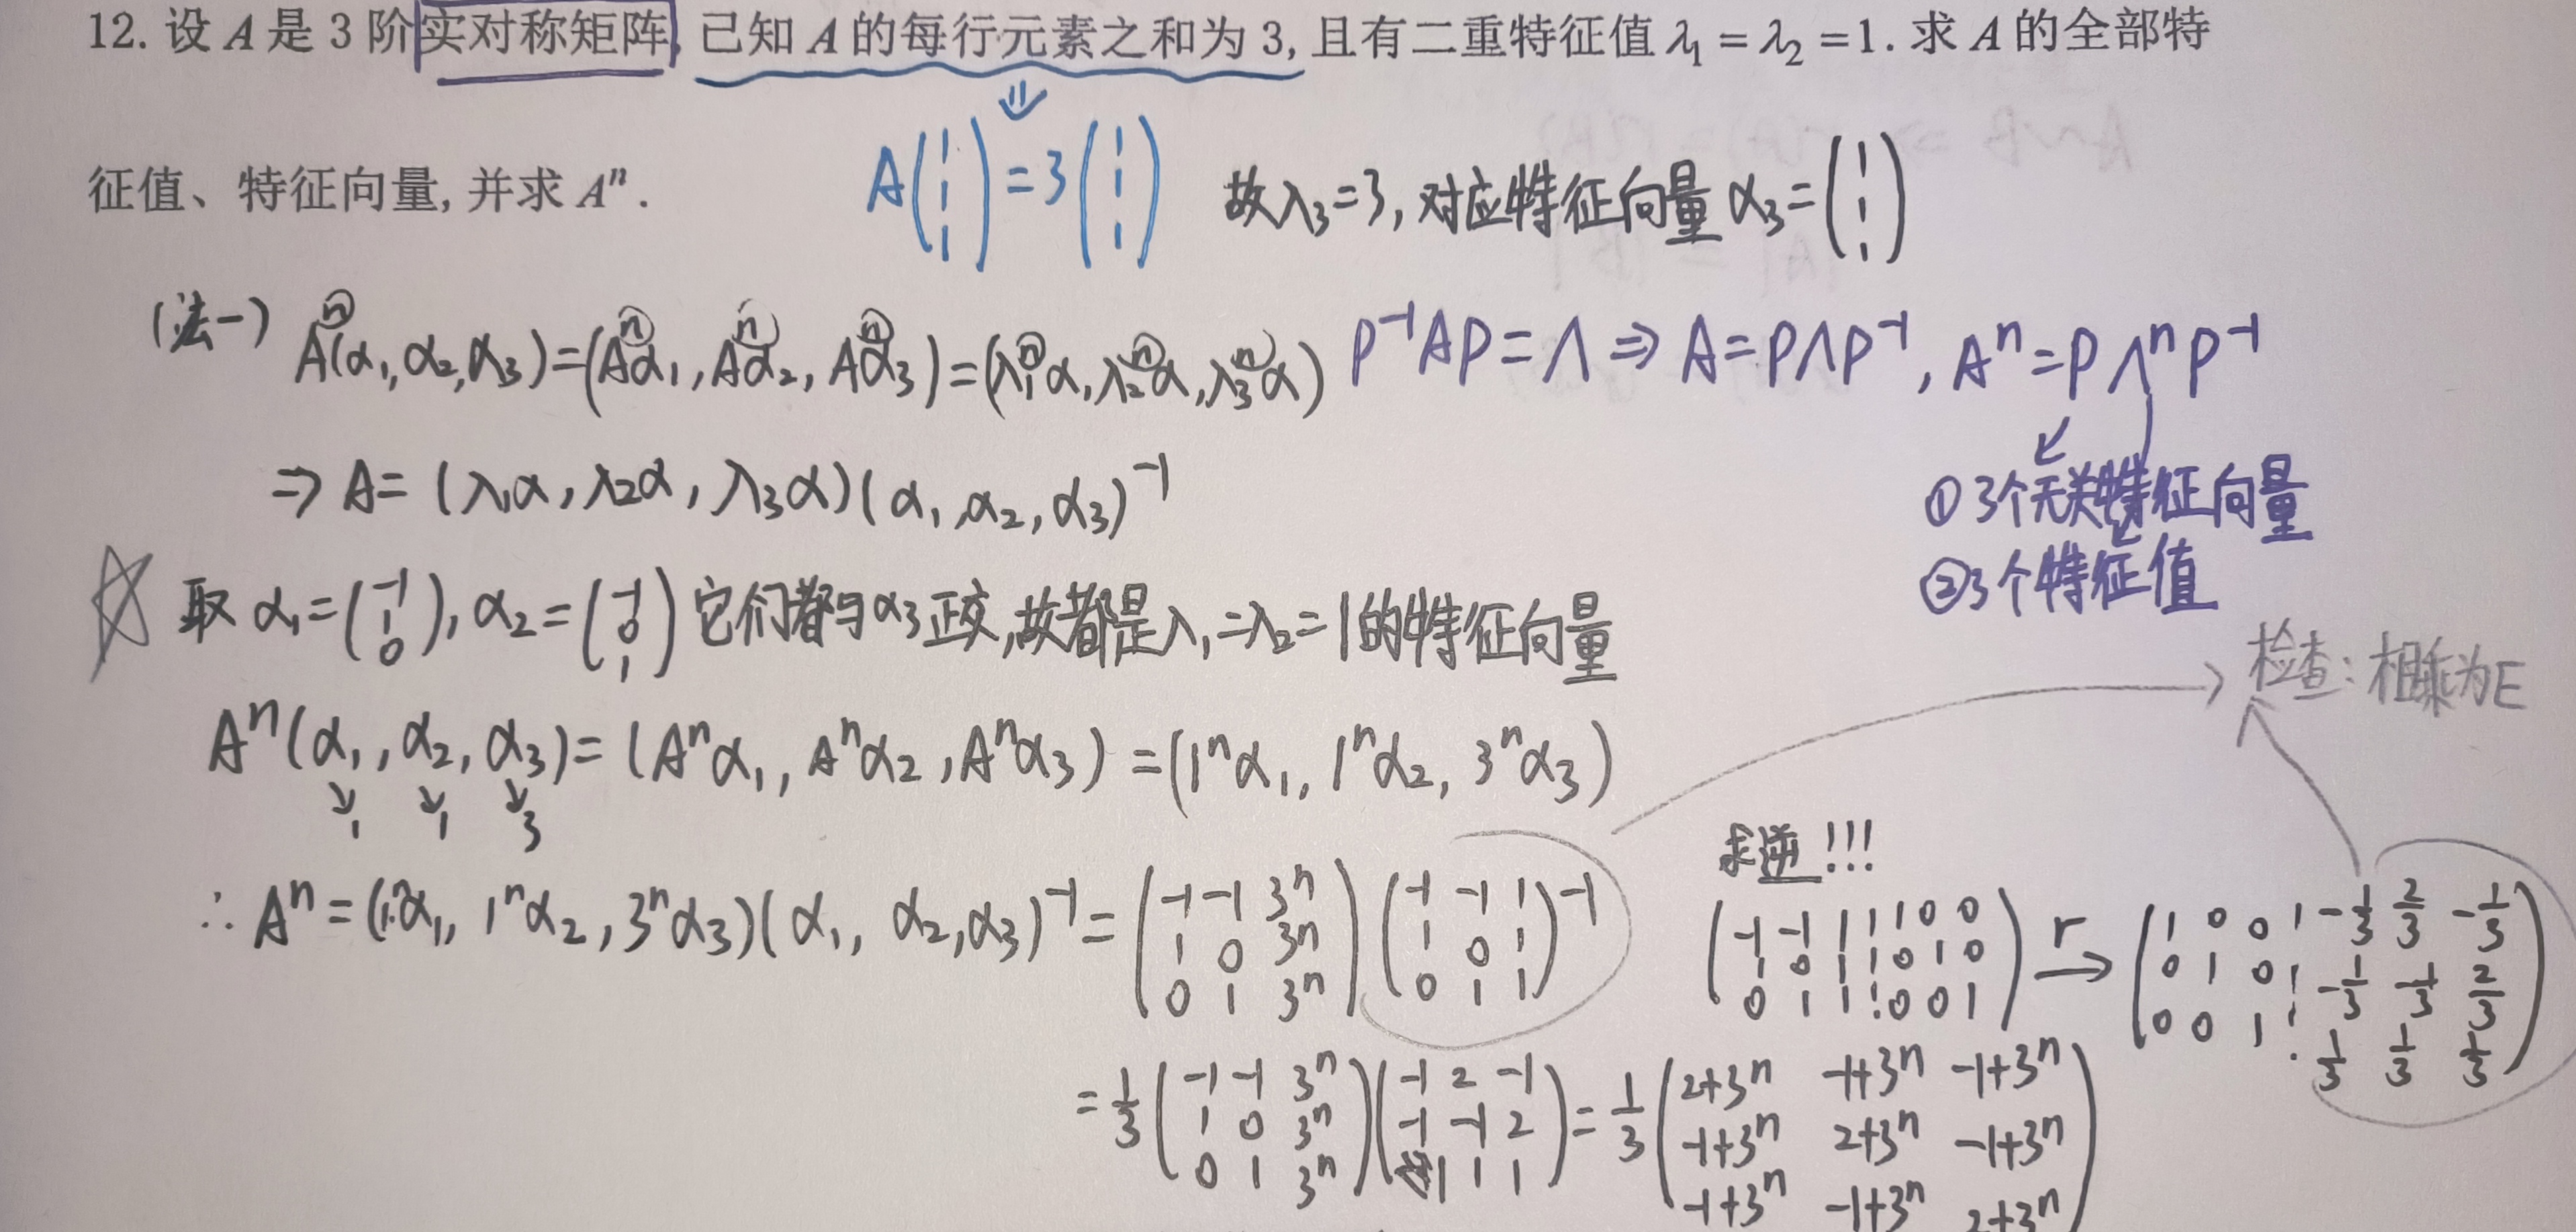 12. 设 A 是 3 阶实对称矩阵, 已知 A 的每行元素之和为 3, 且有二重特征值 λ₁ = λ₂ = 1. 求 A 的全部特
征值、特征向量, 并求 Aⁿ.
A(1 1 1) = 3(1 1 1) 故λ₃=3, 对应特征向量 α₃=(1 1 1)
(法一) Aⁿ(α₁, α₂, α₃) = (Aⁿα₁, Aⁿα₂, Aⁿα₃) = (λ₁ⁿα, λ₂ⁿα, λ₃ⁿα) P⁻¹AP = Λ ⇒ A = PΛP⁻¹, Aⁿ = PΛⁿP⁻¹
⇒ A = (λ₁α, λ₂α, λ₃α)(α₁, α₂, α₃)⁻¹
①3个无关特征向量
②3个特征值
取 α₁=(-1 1 0), α₂=(-1 0 1) 它们都与α₃正交,故都是λ₁=λ₂=1的特征向量
检查: 相乘为E
Aⁿ(α₁, α₂, α₃) = (Aⁿα₁, Aⁿα₂, Aⁿα₃) = (1ⁿα₁, 1ⁿα₂, 3ⁿα₃)
↓1 ↓1 ↓3
求逆!!!
∴ Aⁿ = (1ⁿα₁, 1ⁿα₂, 3ⁿα₃)(α₁, α₂, α₃)⁻¹ = (-1 -1 3ⁿ
1 0 3ⁿ
0 1 3ⁿ)(-1 -1 1
1 0 1
0 1 1)⁻¹
(-1 -1 1 ¦ 1 0 0
1 0 1 ¦ 0 1 0
0 1 1 ¦ 0 0 1) r→ (1 0 0 ¦ -1/3 2/3 -1/3
0 1 0 ¦ -1/3 -1/3 2/3
0 0 1 ¦ 1/3 1/3 1/3)
= 1/3 (-1 -1 3ⁿ
1 0 3ⁿ
0 1 3ⁿ)(-1 2 -1
-1 -1 2
1 1 1) = 1/3 (2+3ⁿ -1+3ⁿ -1+3ⁿ
-1+3ⁿ 2+3ⁿ -1+3ⁿ
-1+3ⁿ -1+3ⁿ 2+3ⁿ)